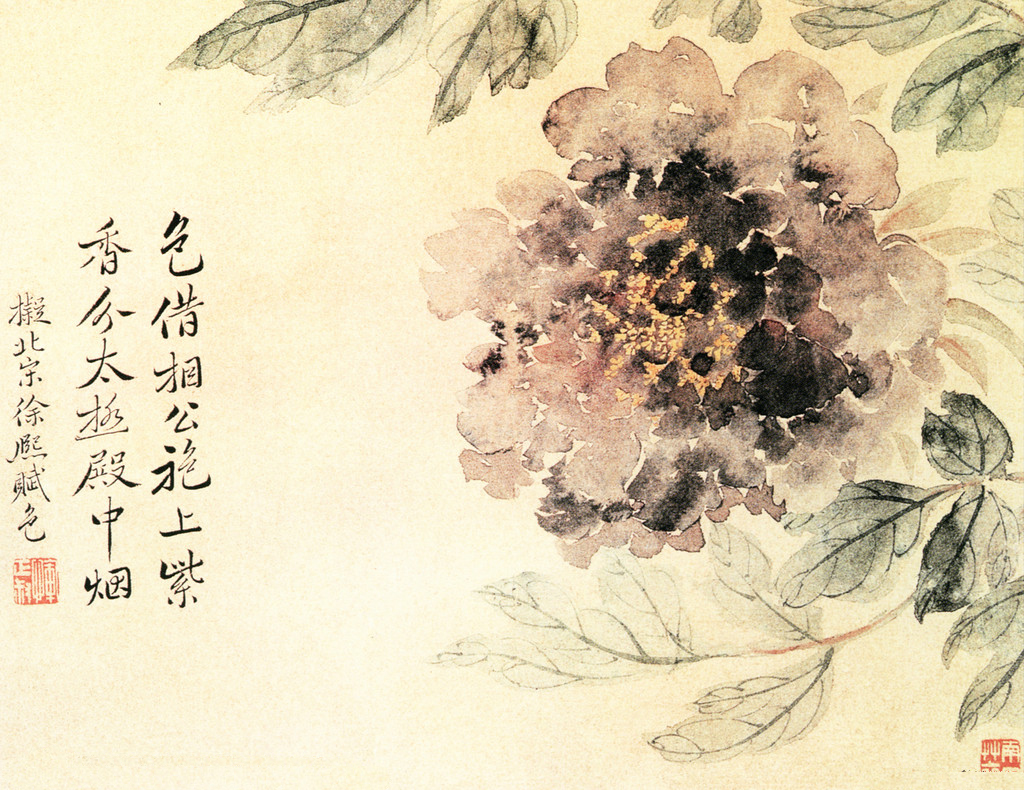 色借相公袍上紫
香分太极殿中烟
擬北宋徐熙賦色